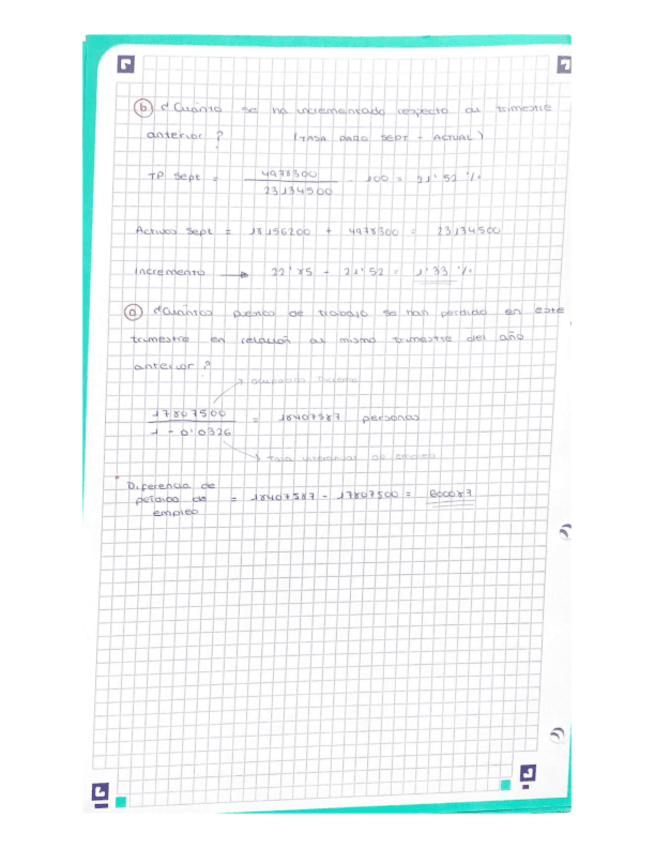 b) ¿Cuánto se ha incrementado respecto al trimestre
anterior? (TASA PARO SEPT - ACTUAL)
TP Sept = 4978300 / 23134500 · 100 = 21'52 %
Activos Sept = 18156200 + 4978300 = 23134500
Incremento → 22'85 - 21'52 = 1'33 %
a) ¿Cuántos puestos de trabajo se han perdido en este
trimestre en relación al mismo trimestre del año
anterior?
ocupados
17807500 / 1 - 0'0326 = 18407587 personas
tasa interanual de empleo
Diferencia de
perdida de = 18407587 - 17807500 = 600087
empleo